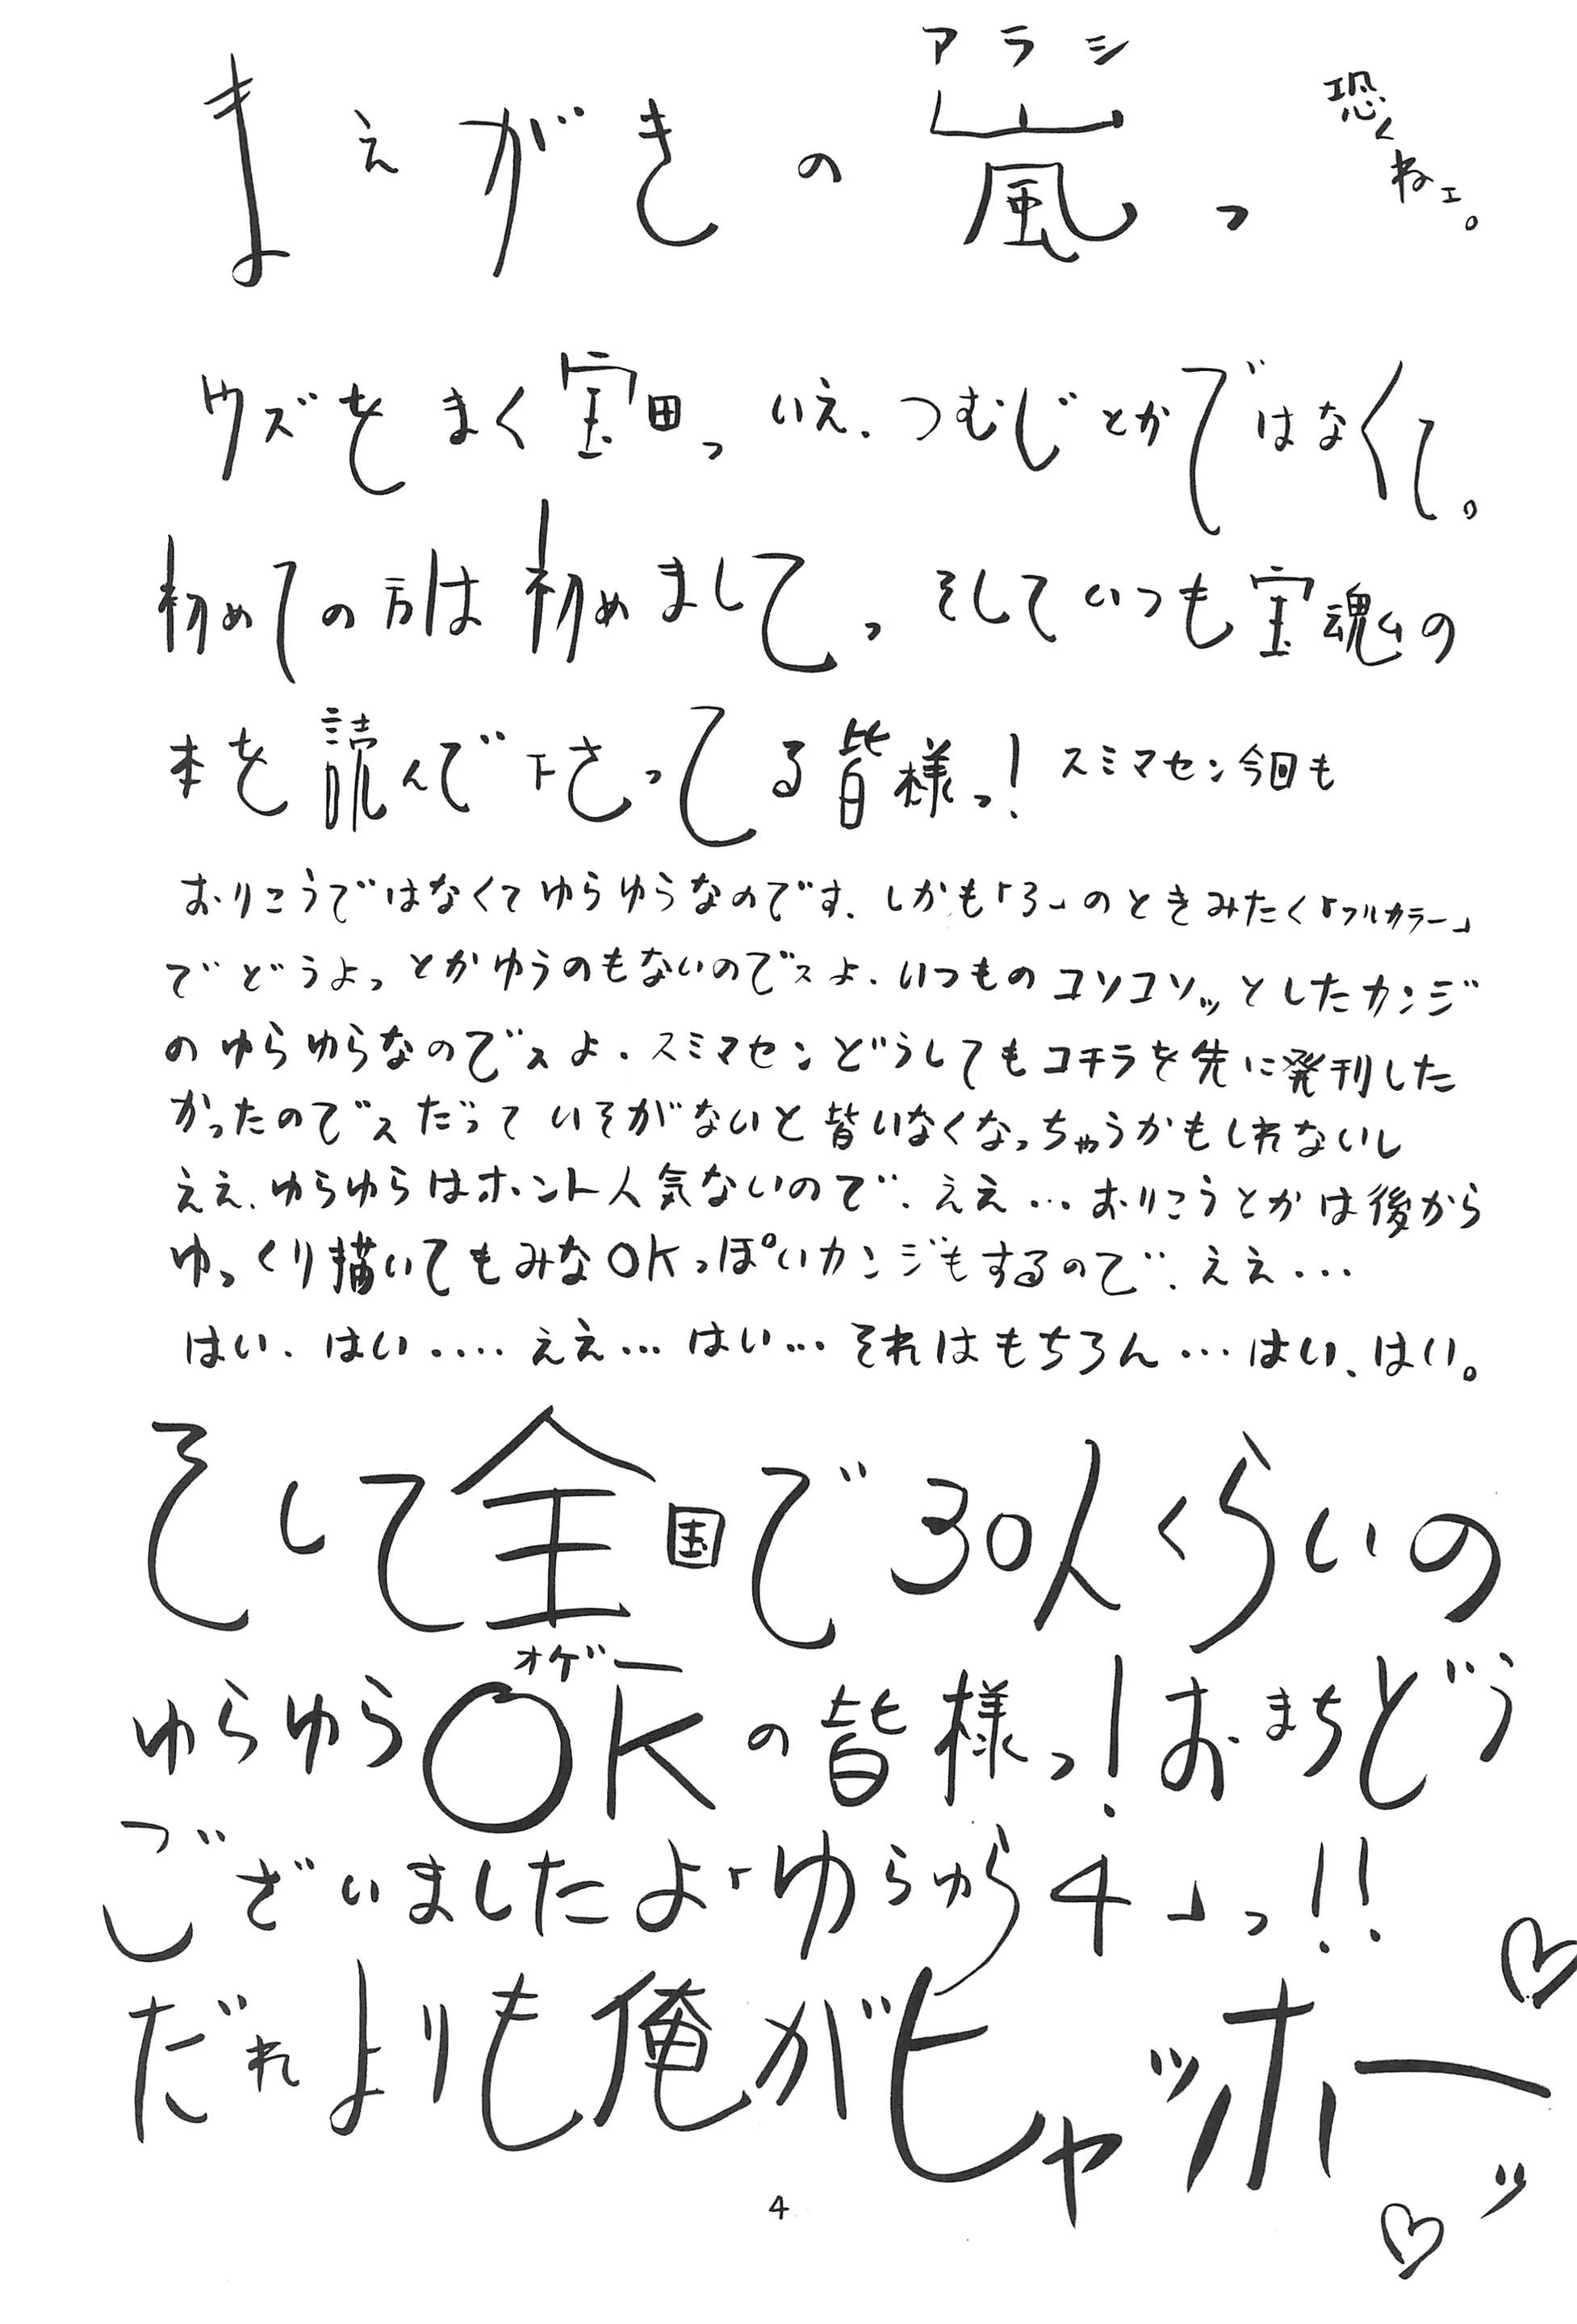 アラシ
まえがきの嵐っ
恐くねェ。
ウズをまく宝田っ いえ、つむじとかではなくて。
初めての方は初めましてっ そしていつも宝魂ムの
本を読んで下さってる皆様っ! スミマセン今回も
おりこうではなくてゆらゆらなのです、しかも「3」のときみたく「フルカラー」
でどうよっとかゆうのもないのでスよ、いつものコソコソッとしたカンジ
のゆらゆらなのでスよ、スミマセンどうしてもコチラを先に発刊した
かったのでスだって いそがないと皆いなくなっちゃうかもしれないし
ええ、ゆらゆらはホント人気ないので、ええ…おりこうとかは後から
ゆっくり描いてもみなOKっぽいカンジもするので、ええ…
はい、はい‥‥ええ…はい…それはもちろん…はい、はい。
そして全国で30人くらいの
オゲー
ゆらゆらOKの皆様っ!おまちどう
ございましたよ「ゆらゆら4」っ!!
だれよりも俺がヒャッホーッ
4